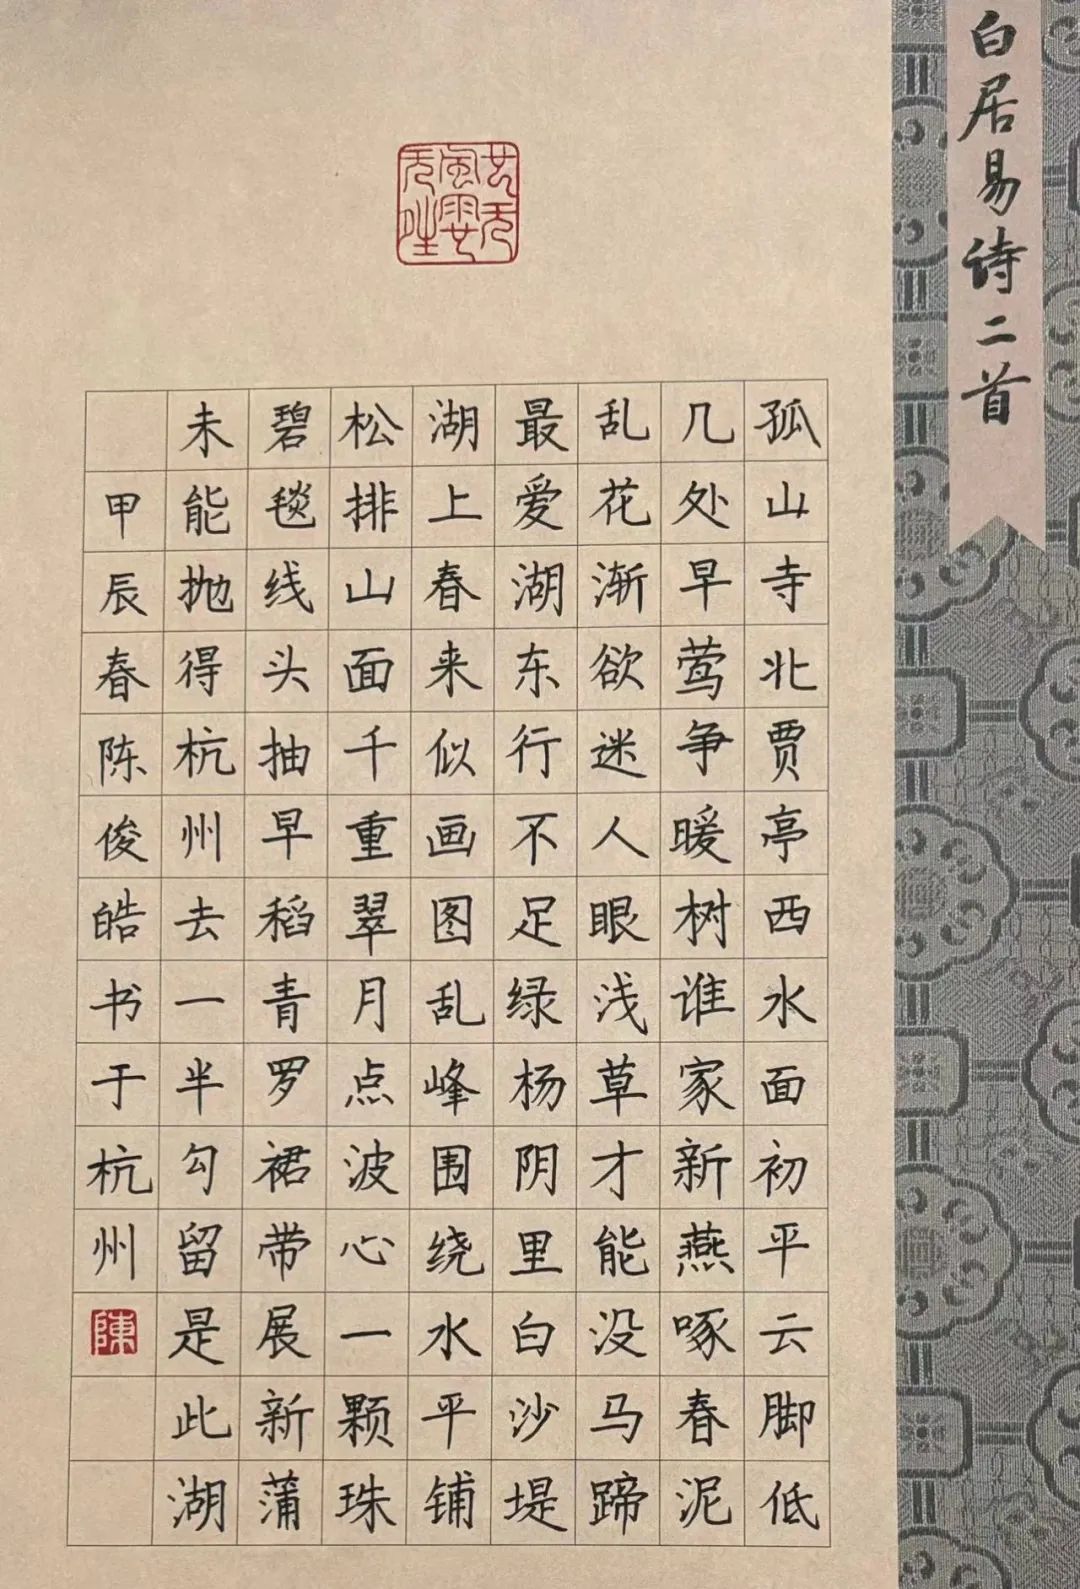 白居易诗二首
孤山寺北贾亭西水面初平云脚低
几处早莺争暖树谁家新燕啄春泥
乱花渐欲迷人眼浅草才能没马蹄
最爱湖东行不足绿杨阴里白沙堤
湖上春来似画图乱峰围绕水平铺
松排山面千重翠月点波心一颗珠
碧毯线头抽早稻青罗裙带展新蒲
未能抛得杭州去一半勾留是此湖
甲辰春陈俊皓书于杭州陳